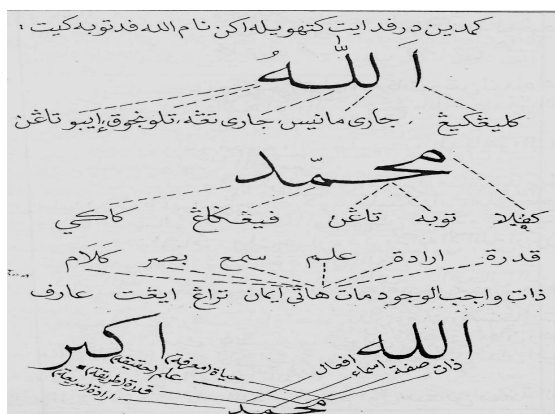 كمدين درفدايت كتهويله اكن نام الله فد توبه كيت :
اَللّٰهُ
كليڠكيڠ ، جاری مانيس، جاری تڠه، تلونجوق، إيبو تاڠن
محمّد
كفالا توبه تاڠن فيڠڬاڠ كاكي
قدرة ارادة علم سمع بصر كَلَام
ذات واجب الوجود مات هاتي ايمان تراڠ ايڠت عارف
الله اكبر
ذات صفة اسماء افعال حياة (معرفة) علم (حقيقة) قدرة (طريقة) ارادة (شريعة)
محمد